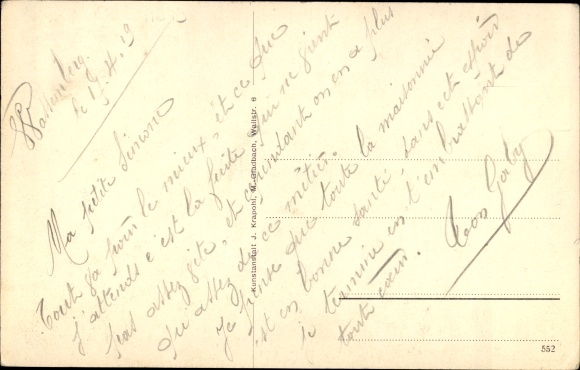 le 15.4.19
Ma petite Simone
Tout va pour le mieux, et ce que
j'attends c'est la fuite qui ne vient
pas assez vite, et cependant on en a plus
qu'assez de ce métier.
Je pense que toute la maisonnée
est en bonne santé, dans cet espoir
je termine en t'embrassant de
tout cœur. Gaby
Kunstanstalt J. Krapohl, M.-Gladbach, Wallstr. 6
552